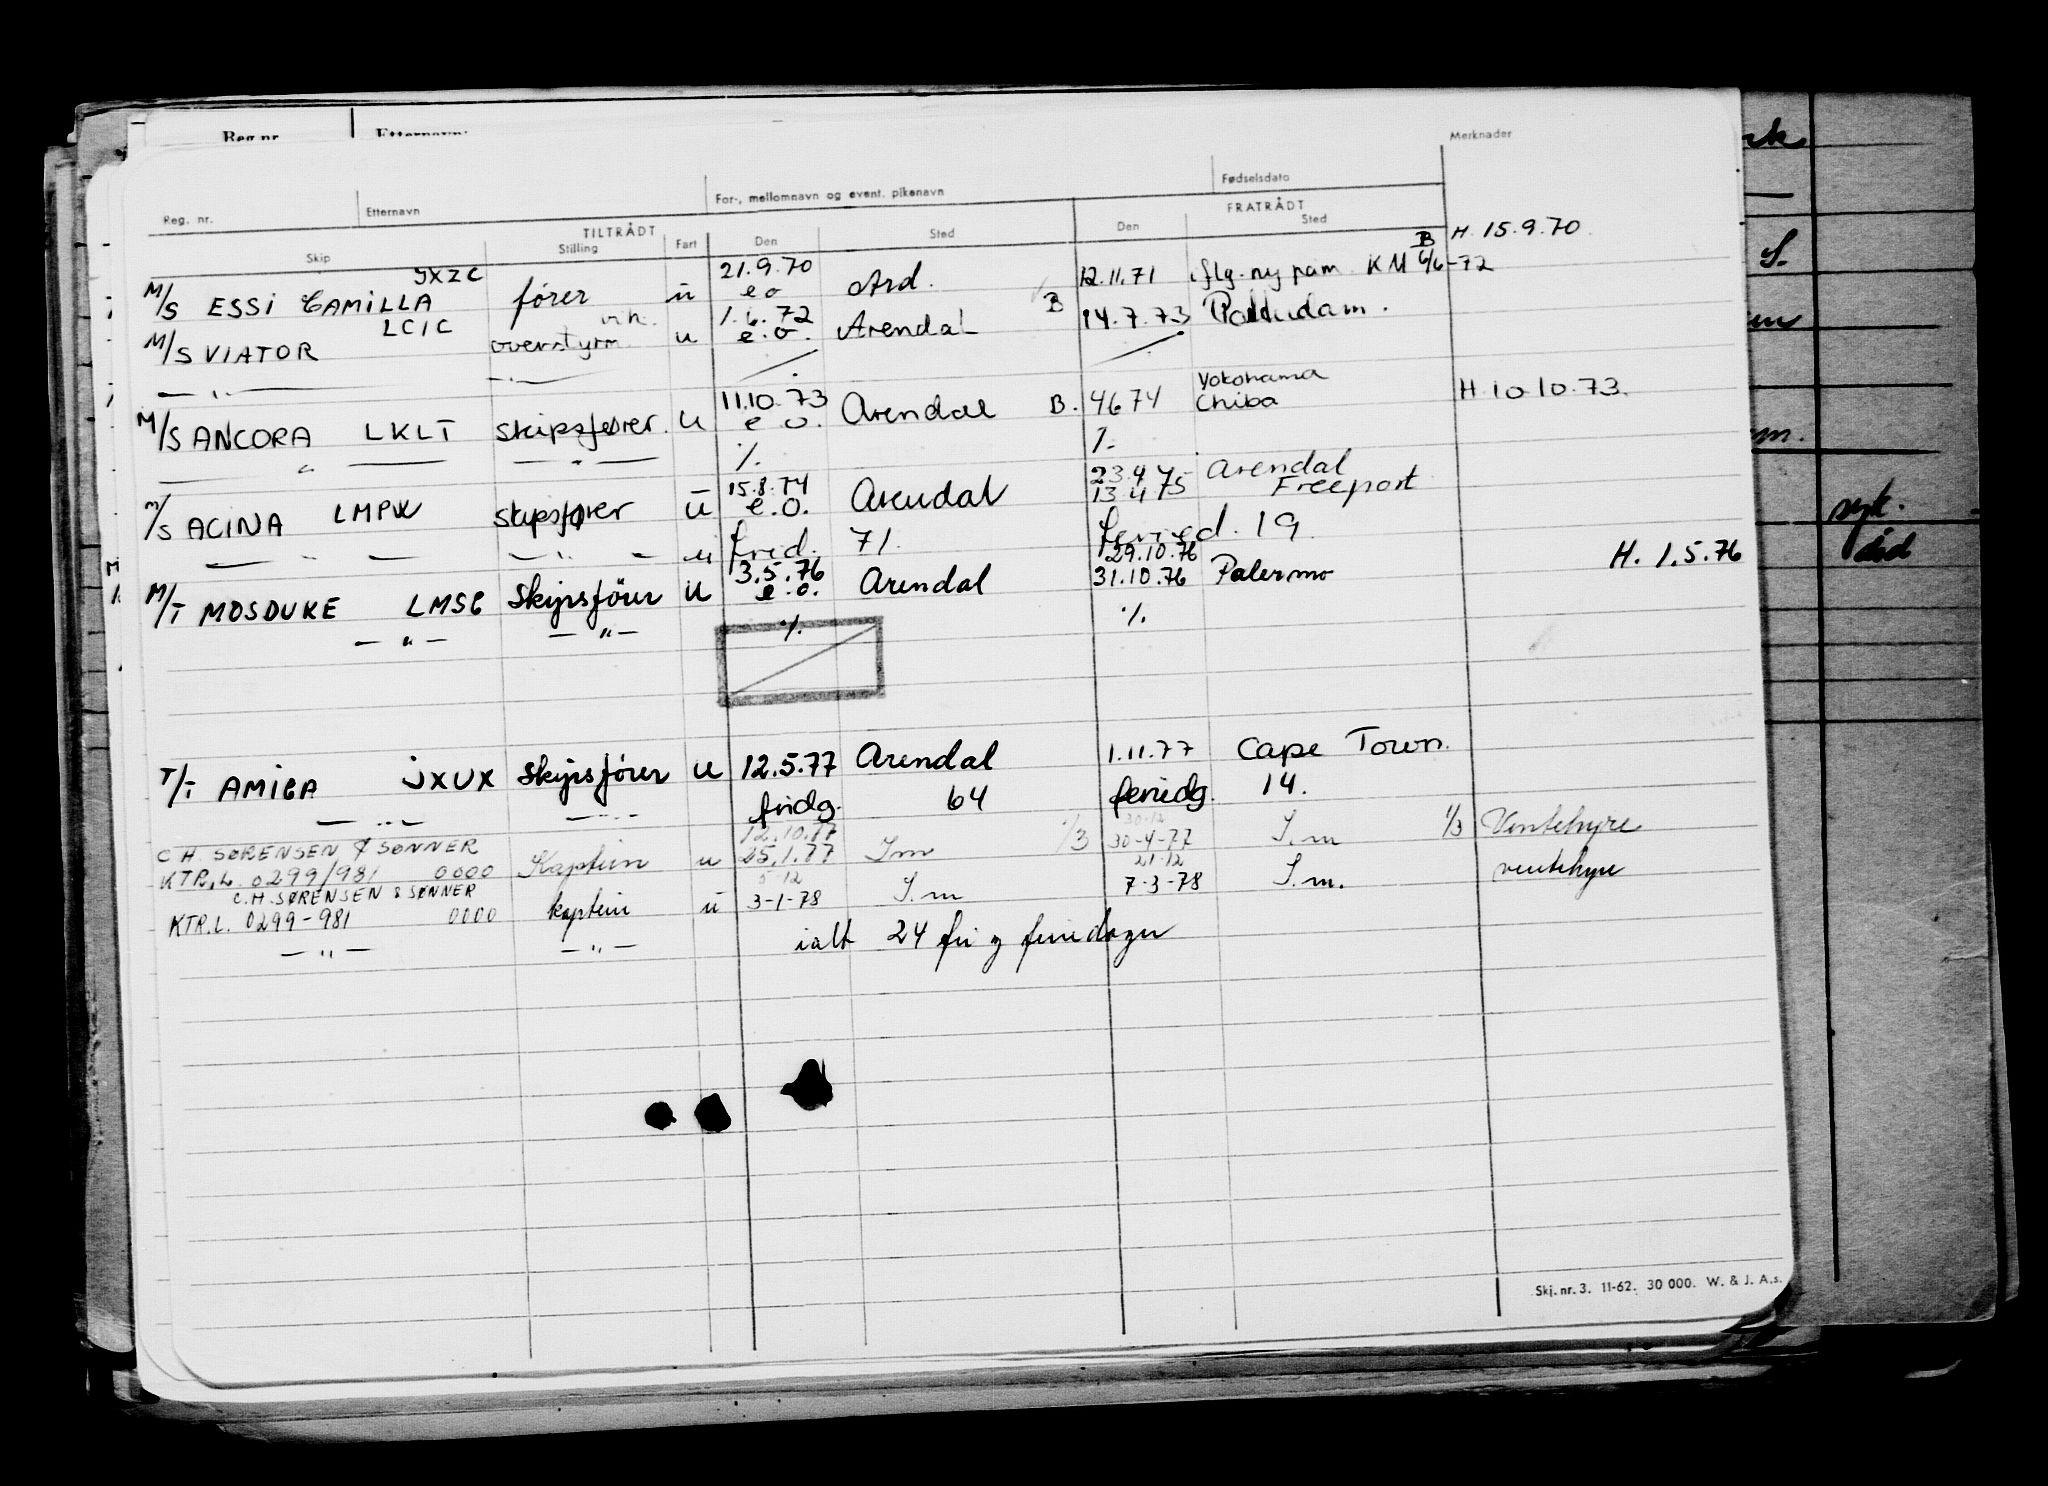 Reg.nr. Etternavn:
Merknader
Reg. nr. Etternavn For-, mellomnavn og event. pikenavn Fødselsdato
TILTRÅDT FRATRÅDT
Skip Stilling Fart Den Sted Den Sted
M/S ESSI CAMILLA JXZC fører u 21.9.70 e o Ard. 12.11.71 iflg. ny pam. KM B 6/6-72 H. 15.9.70
M/S VIATOR LCIC overstyrm. vik. u 1.6.72 e.o. Arendal B 14.7.73
— " — — " —
M/S ANCORA LKLT skipsfører. u 11.10.73 e o. Arendal B. 4 6 74 Yokohama Chiba H. 10.10.73.
— " — — " — %. %.
M/S ACINA LMPW skipsfører u 15.8.74 e.o. Arendal 23.4.75 13.4.75 Arendal Freeport
— " — — " — u frid. 71. 19
M/T MOSDUKE LMSG Skipsfører u 3.5.76 e.o. Arendal 29.10.76 31.10.76 Palermo H. 1.5.76
— " — — " — %. %.
T/T AMICA JXUX Skipsfører u 12.5.77 Arendal 1.11.77 Cape Town.
— " — — " — fridg. 64 feriedg. 14.
CH. SØRENSEN & SØNNER
KTR.L. 0299/981 0000 Kaptein u 12.10.77 25.1.77 Im 1/3 30-12 30-4-77 I.m 1/3 Ventehyre
C.H. SØRENSEN & SØNNER
KTR.L. 0299-981 0000 kaptein u 5-12 3-1-78 I.m 21-12 7-3-78 I.m. ventehyre
— " — — " — ialt 24 fri og feriedager
syk.
død
Skj. nr. 3. 11-62. 30 000. W. & J. A.s.